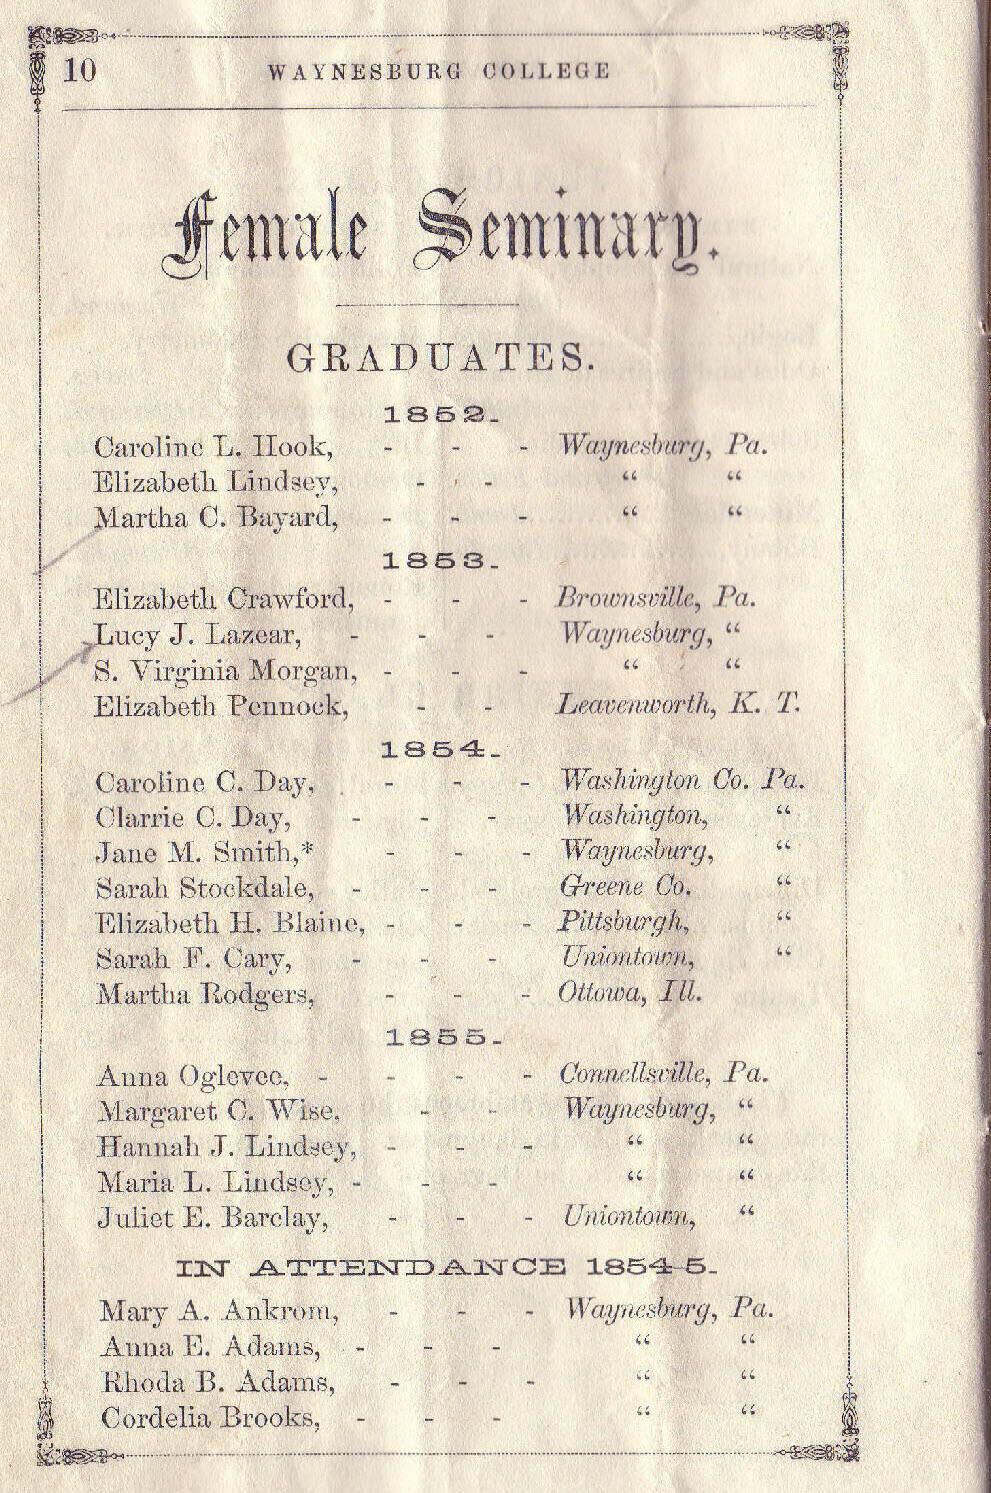 10 WAYNESBURG COLLEGE
Female Seminary.
GRADUATES.
1852.
Caroline L. Hook, - - - Waynesburg, Pa.
Elizabeth Lindsey, - - “ “
Martha C. Bayard, - - - “ “
1853.
Elizabeth Crawford, - - - Brownsville, Pa.
Lucy J. Lazear, - - - Waynesburg, “
S. Virginia Morgan, - - - “ “
Elizabeth Pennock, - - Leavenworth, K. T.
1854.
Caroline C. Day, - - - Washington Co. Pa.
Clarrie C. Day, - - - Washington, “
Jane M. Smith,* - - - Waynesburg, “
Sarah Stockdale, - - - Greene Co. “
Elizabeth H. Blaine, - - - Pittsburgh, “
Sarah F. Cary, - - - Uniontown, “
Martha Rodgers, - - - Ottowa, Ill.
1855.
Anna Oglevee, - - - - Connellsville, Pa.
Margaret C. Wise, - - Waynesburg, “
Hannah J. Lindsey, - - - “ “
Maria L. Lindsey, - - - “ “
Juliet E. Barclay, - - - Uniontown, “
IN ATTENDANCE 1854-5.
Mary A. Ankrom, - - - Waynesburg, Pa.
Anna E. Adams, - - - “ “
Rhoda B. Adams, - - - “ “
Cordelia Brooks, - - - “ “